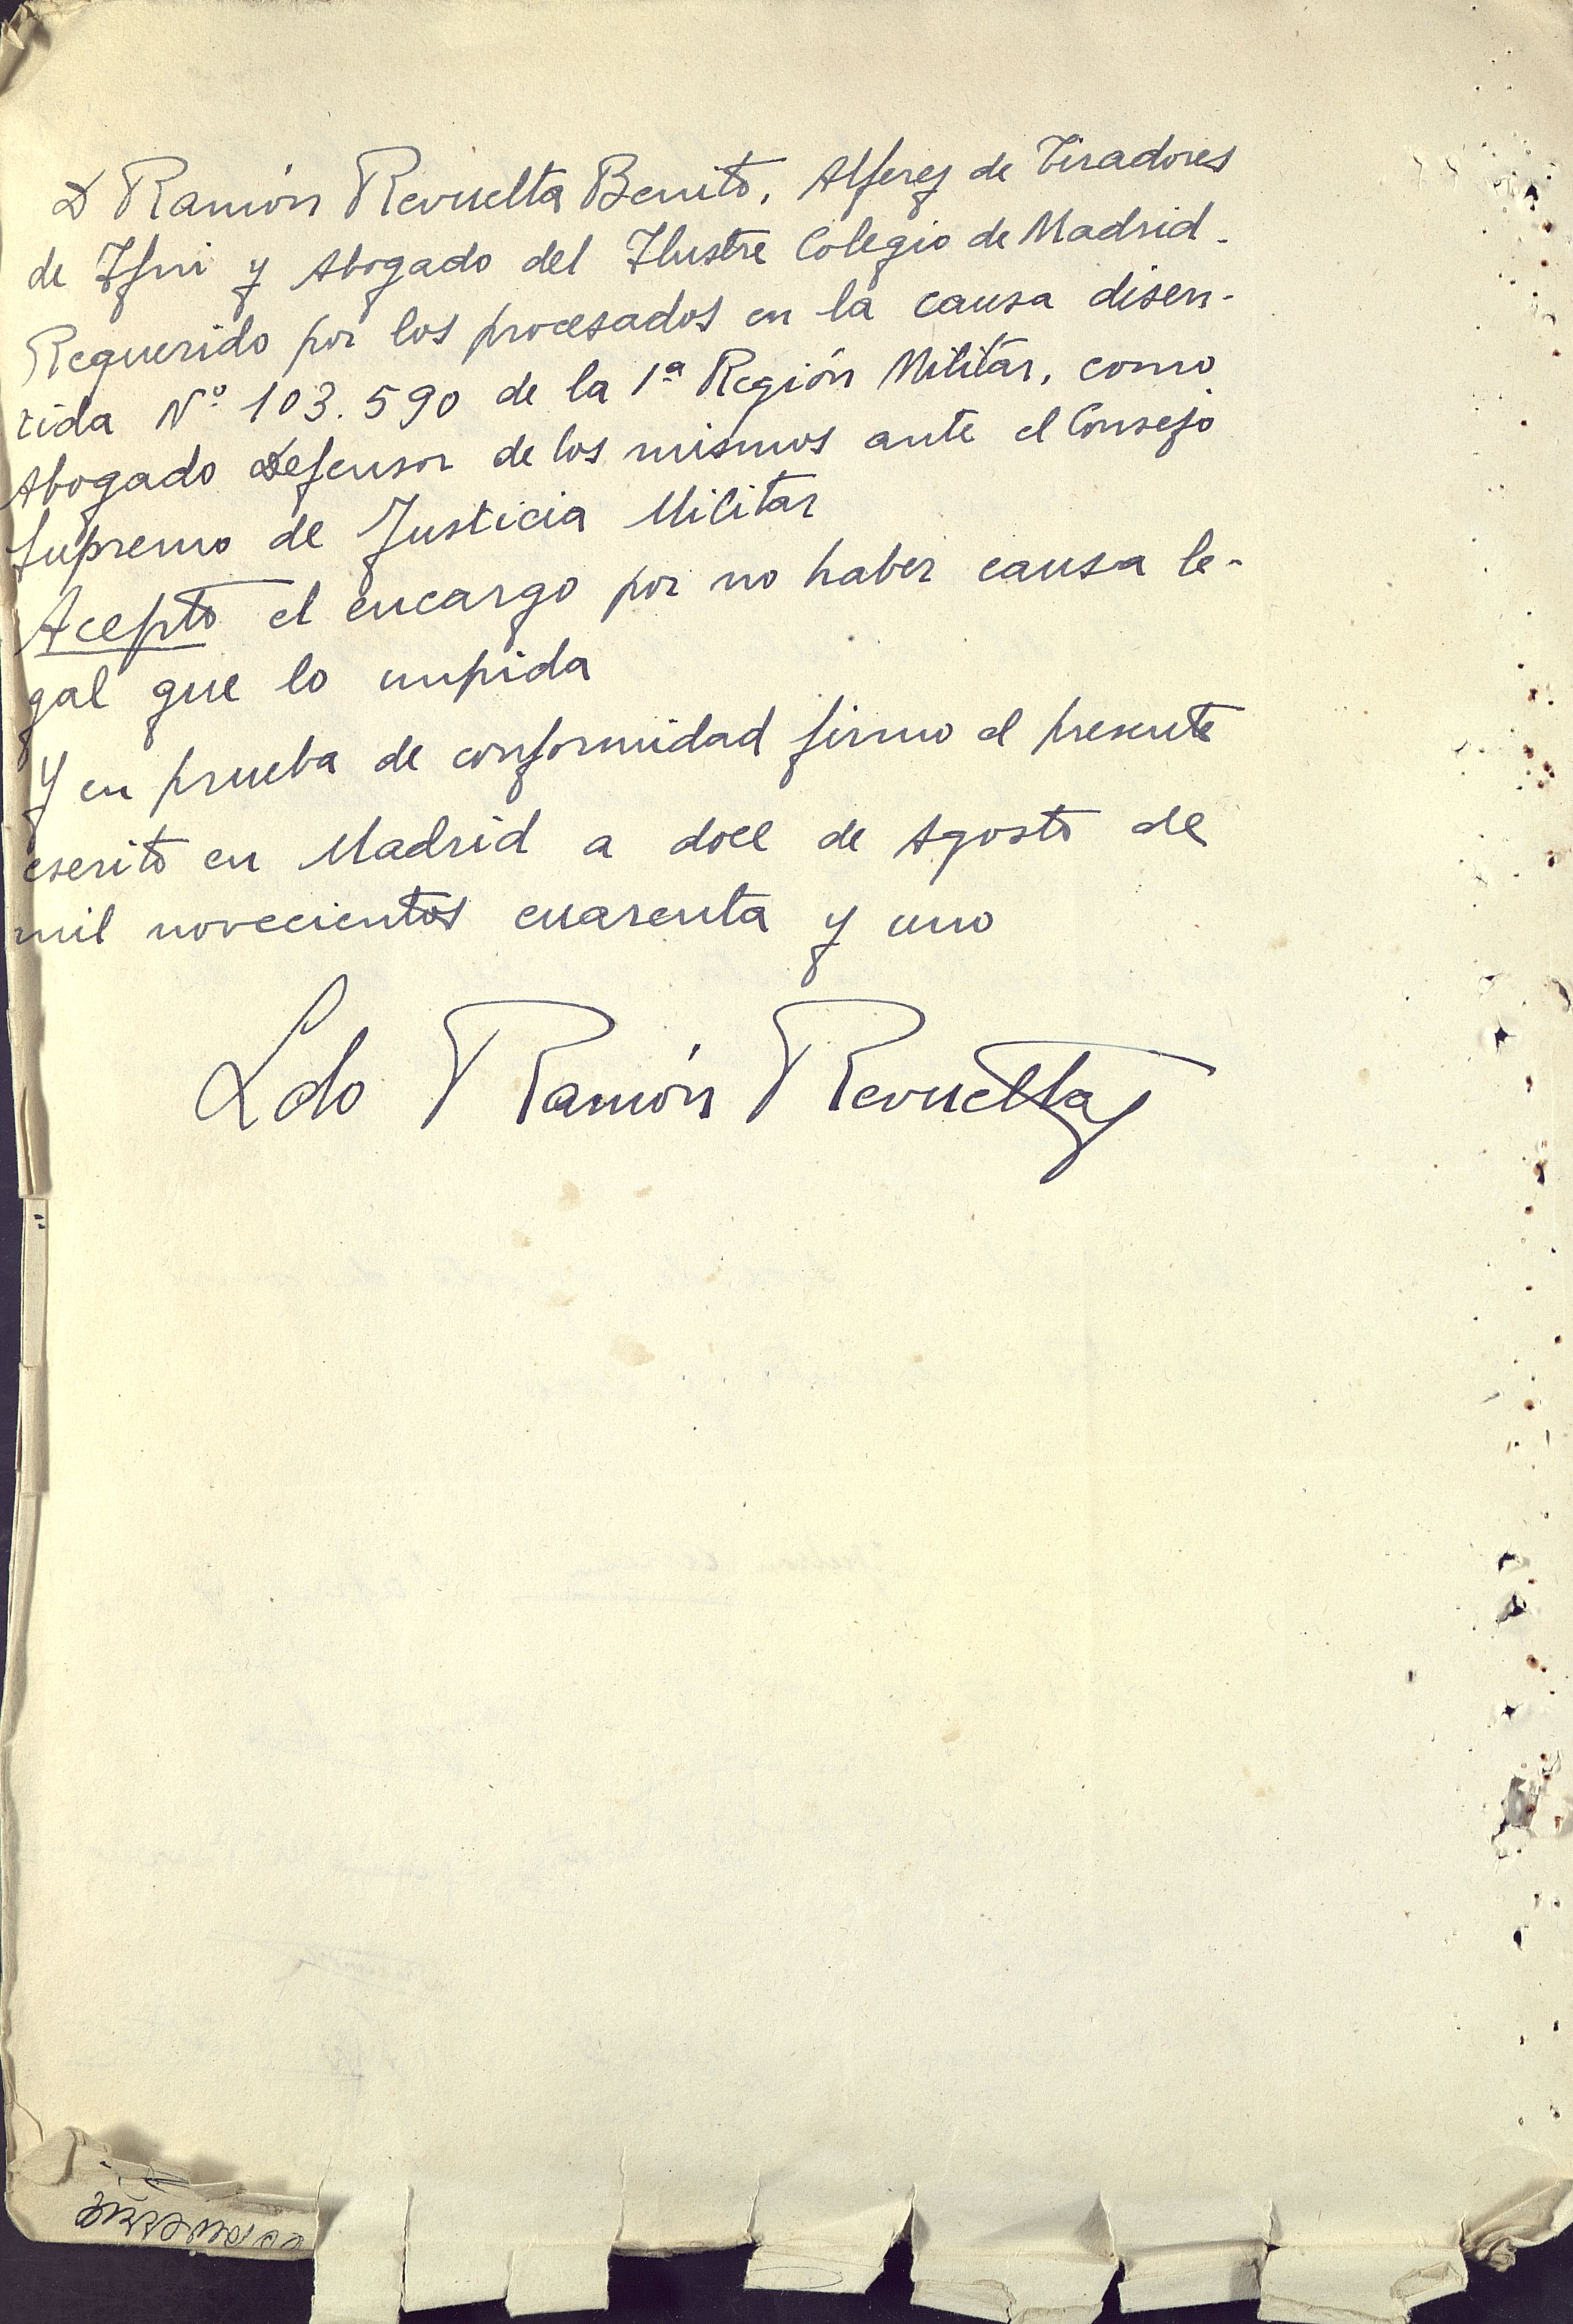 D Ramón Revuelta Benito, Alferez de Tiradores
de Ifni y Abogado del Ilustre Colegio de Madrid.
Requerido por los procesados en la causa disen-
tida Nº 103.590 de la 1ª Región Militar, como
Abogado Defensor de los mismos ante el Consejo
Supremo de Justicia Militar
Acepto el encargo por no haber causa le-
gal que lo impida
Y en prueba de conformidad firmo el presente
escrito en Madrid a doce de Agosto de
mil novecientos cuarenta y uno
Ldo Ramón Revuelta